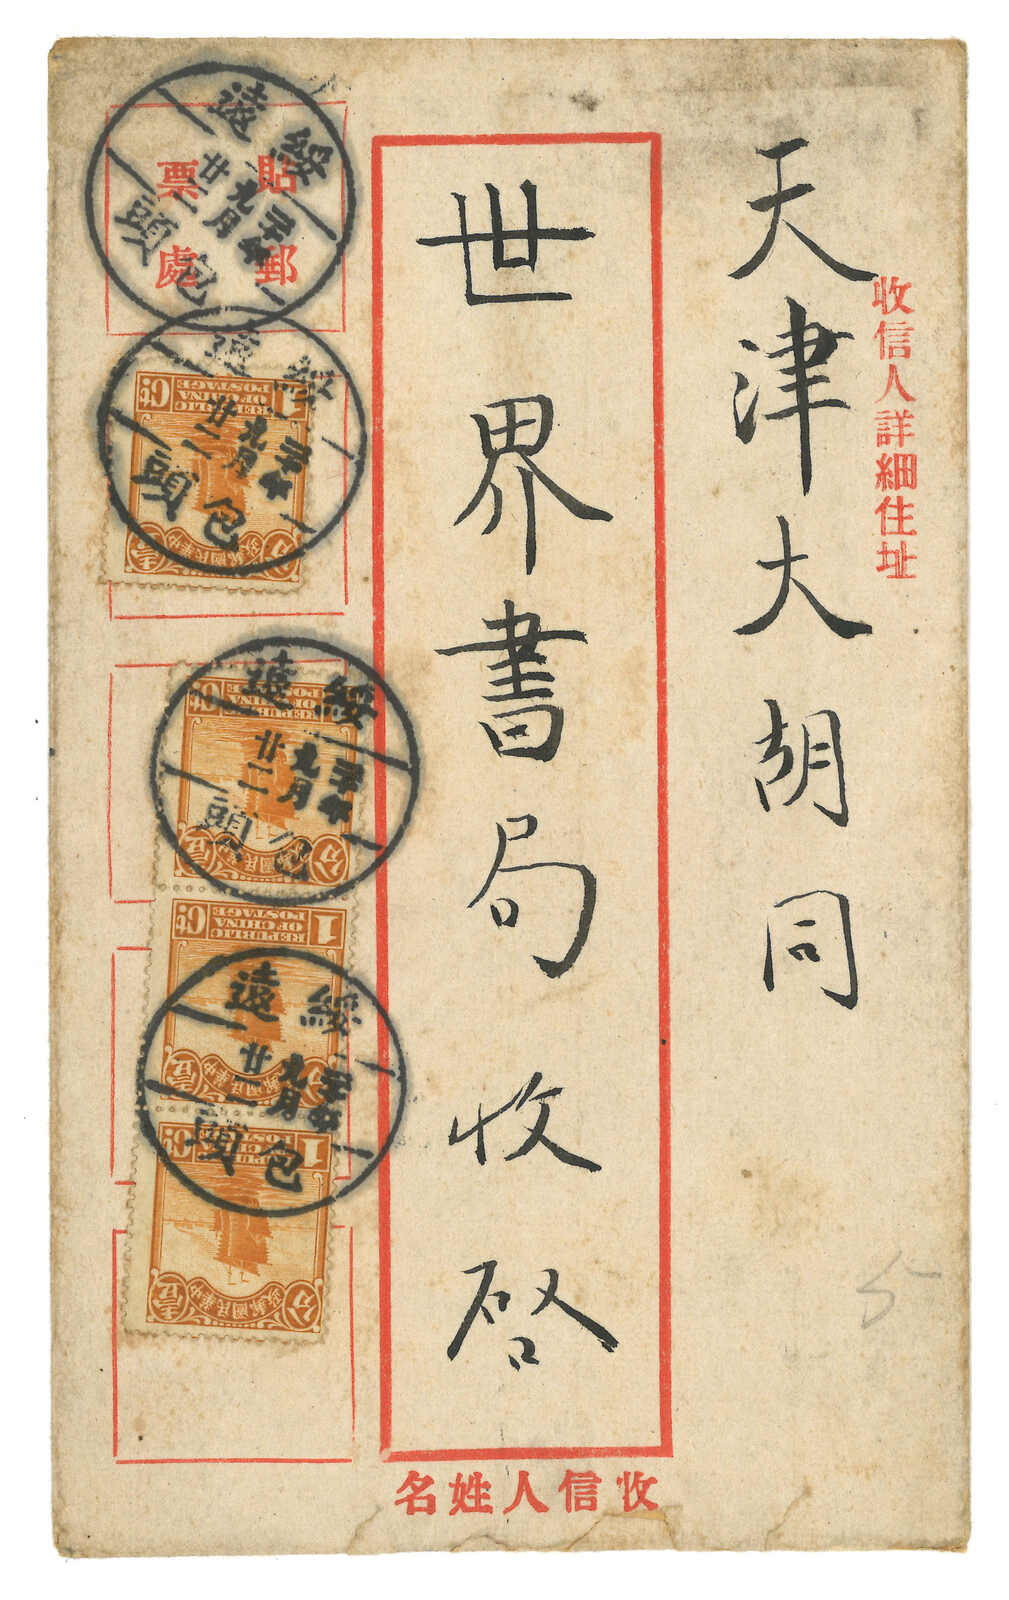 收信人詳細住址
天津大胡同
世界書局收啓
收信人姓名
貼郵
票處
綏遠
九月
廿二
包頭
綏遠
九月
廿二
包頭
1 Ct
REPUBLIC
OF CHINA
POSTAGE
中華民國郵政
壹 分
綏遠
九月
廿二
包頭
1 Ct
REPUBLIC
OF CHINA
POSTAGE
中華民國郵政
壹 分
綏遠
九月
廿二
包頭
1 Ct
REPUBLIC
OF CHINA
POSTAGE
中華民國郵政
壹 分
1 Ct
REPUBLIC
OF CHINA
POSTAGE
中華民國郵政
壹 分